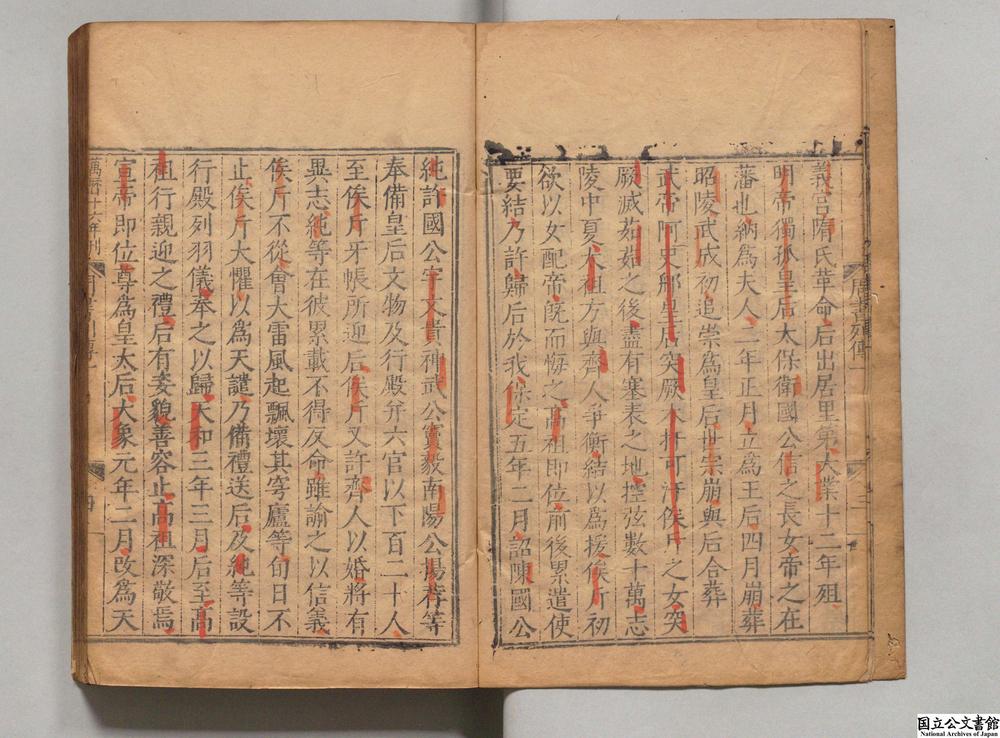 義宮隋氏革命后出居里第大業十二年殂
明帝獨孤皇后太保衛國公信之長女帝之在
藩也納爲夫人二年正月立爲王后四月崩葬
昭陵武成初追崇爲皇后世宗崩與后合葬
武帝阿史那皇后突厥木扞可汗俟斤之女突
厥滅茹茹之後盡有塞表之地控弦數十萬志
陵中夏太祖方與齊人爭衡結以爲援俟斤初
欲以女配帝旣而悔之高祖即位前後累遣使
要結乃許歸后於我保定五年二月詔陳國公
純許國公宇文貴神武公竇毅南陽公楊荐等
奉備皇后文物及行殿幷六宮以下百二十人
至俟斤牙帳所迎后俟斤又許齊人以婚將有
異志純等在彼累載不得反命雖諭之以信義
俟斤不從會大雷風起飄壞其穹廬等旬日不
止俟斤大懼以爲天譴乃備禮送后及純等設
行殿列羽儀奉之以歸天和三年三月后至高
祖行親迎之禮后有姿貌善容止高祖深敬焉
宣帝即位尊爲皇太后大象元年二月改爲天
周書列傳一
萬曆十六年刊
周書列傳一
四
国立公文書館
National Archives of Japan